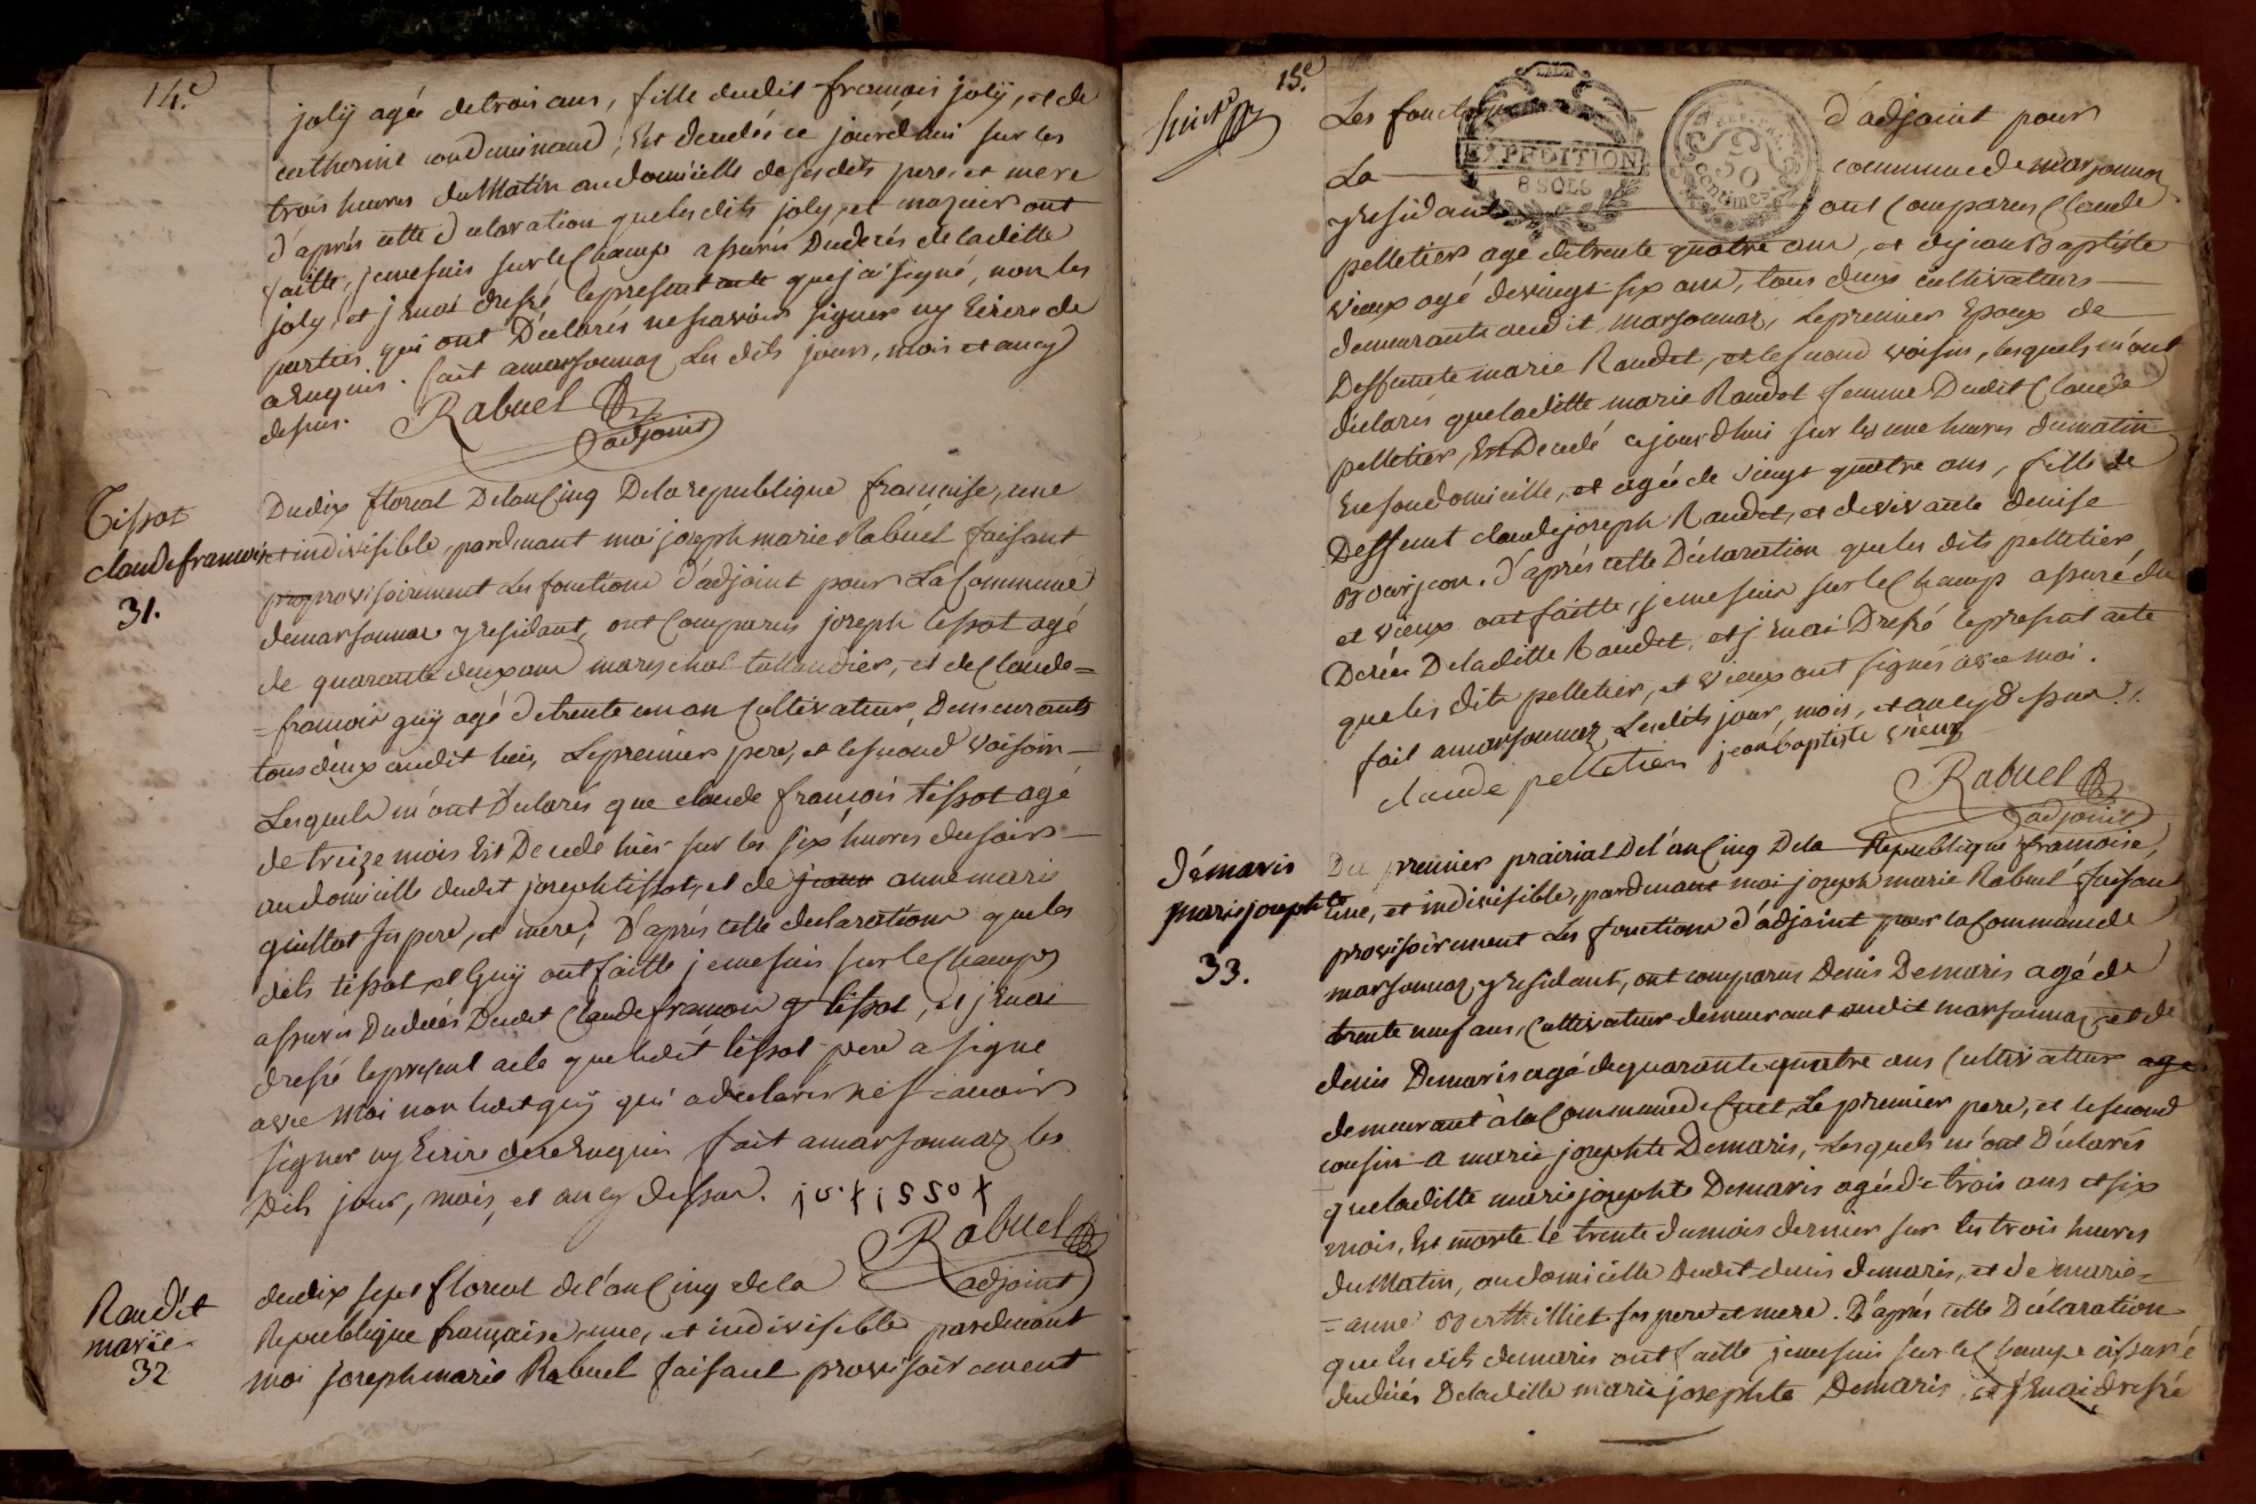 14.e
joly agée de trois ans, fille dudit françois joly, et de
catherine condeminand, Est decedée ce jourd'hui sur les
trois heures du Matin au domicille de ses dits pere et mere
d'après cette declaration que lesdits joly, et mazuir ont
faitte, je me suis sur le Champ assurés Du decès de laditte
joly, et j'En ai dressé le present acte que j'ai signé, non les
parties qui ont Déclarés ne sçavoir signer ny Ecrire de
ce Enquis. fait a marsonnaz Les dits jours, mois et an cy
dessus. Rabuel
adjoint
Tissot
claude françois
31.
Du dix floreal De l'an Cinq De la republique française, une
et indivisible, pardevant moi joseph marie Rabuel faisant
provisoirement Les fonctions d'adjoint pour La Commune
de marsonnaz y residant, ont Comparus joseph tissot agé
de quarante deux ans mareschal tallandier, et de Claude=
=françois guÿ agé de trente un an Cultivateur, Demeurants
tous deux audit lieu, Le premier pere, et le second voisoin
Lesquels m'ont Déclarés que claude françois tissot agé
de treize mois Est Decedé hier sur les six heures du soir
au domicille dudit joseph tissot, et de jeann anne marie
guillot ses pere, et mere; D'après cette declaration que les
dits tissot, et Guÿ ont faitte je me suis sur le Champ
assurés Du decès Dudit Claude françois g tissot, et j'En ai
dressé le present acte que ledit tissot pere a signé
avec Moi non ledit guÿ qui a declarés ne scavoir
signer ny Ecrire de ce Enquis fait a marsonnaz les
Dits jour, mois, et an cy Dessus. jo. tissot
Rabuel
adjoint
Raudet
marie
32
du dix sept floreal de l'an Cinq de la
Republique française, une, et indivisible pardevant
moi joseph marie Rabuel faisant provisoirement
15.e
Les fonctions d'adjoint pour
EXPEDITION
8 SOLS
50
centimes
La commune de marsonnaz
y residant ont Comparus Claude
pelletier agé de trente quatre ans, et de jean Baptiste
vieux agé de vingt six ans, tous deux cultivateurs
demeurants audit marsonnaz, Le premier Epoux de
Deffunte marie Raudet, et le second voisin, lesquels m'ont
déclarés que laditte marie Raudet femme Dudit Claude
pelletier, Est Decedé ce jourd'hui sur les une heures du matin
En son domicille, et agée de vingt quatre ans, fille de
Deffunt claude joseph Raudet, et de vivante denise
Bourjeon. d'après cette Déclaration que les dits pelletier
et vieux ont faitte, je me suis sur le Champ assuré du
Decès De laditte Raudet, et j'En ai Dressé le present acte
que les dits pelletier, et vieux ont signés avec moi.
fait a marsonnaz Lesdits jour, mois, et an cy dessus./.
claude pelletier jean baptiste vieux
Rabuel
adjoint
démaris
marie josephte
33.
Du premier prairial De l'an Cinq De la Republique française,
une, et indivisible, pardevant moi joseph marie Rabuel faisant
provisoirement Les fonctions d'adjoint pour la Commune de
marsonnaz, y residant, ont comparus Denis Demaris agé de
trente neuf ans, Cultivateur demeurant audit marsonnaz, et de
denis Demaris agé de quarante quatre ans Cultivateur age
demeurant à la Commune de Cuet, Le premier pere, et le second
cousin a marie josephte Demaris, Lesquels m'ont Déclarés
que laditte marie josephte Demaris agée de trois ans et six
mois, Est morte le trente du mois dernier sur les trois heures
du Matin, au domicille Dudit denis demaris, et de marie=
=anne Berthilliet ses pere et mere. D'après cette Déclaration
que les dits demaris ont faitte je me suis sur le Champ assuré
du décès De laditte marie josephte Demaris et j'En ai dressé